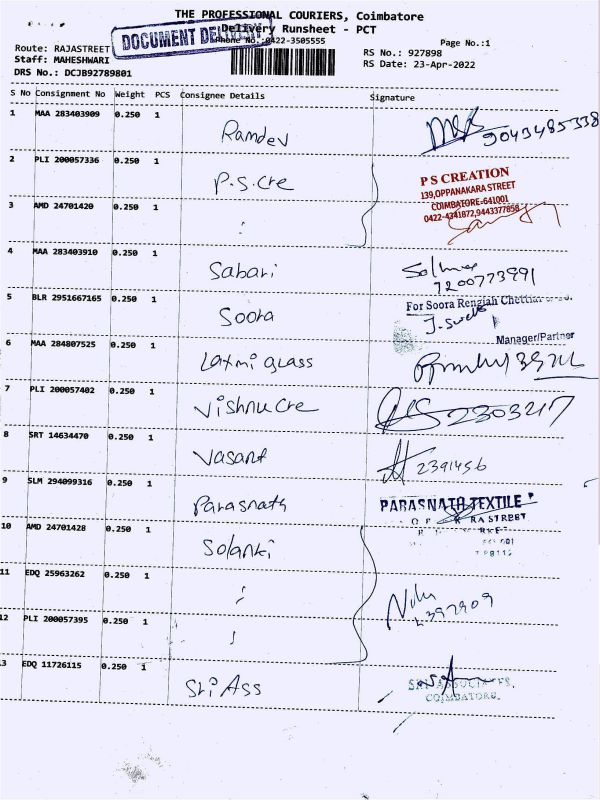 THE PROFESSIONAL COURIERS, Coimbatore
Delivery Runsheet - PCT
Phone No.:0422-3505555
DOCUMENT DELIVERY
Page No.:1
Route: RAJASTREET
RS No.: 927898
Staff: MAHESHWARI
RS Date: 23-Apr-2022
DRS No.: DCJB92789801
S No Consignment No Weight PCS Consignee Details Signature
1 MAA 283403909 0.250 1 Ramdev 9043485338
2 PLI 200057336 0.250 1 P.S.Cre
P S CREATION
139,OPPANAKARA STREET
COIMBATORE-641001
0422-4341872,9443377858
3 AMD 24701420 0.250 1
4 MAA 283403910 0.250 1 Sabari
7200773991
5 BLR 2951667165 0.250 1 Soora
For Soora Rengiah Chettiar
Manager/Partner
6 MAA 284807525 0.250 1 Laxmi glass
7 PLI 200057402 0.250 1 Vishnu Cre 2303217
8 SRT 14634470 0.250 1 Vasant 2391456
9 SLM 294099316 0.250 1 Parasnath
PARASNATH TEXTILE
RA STREET
10 AMD 24701428 0.250 1 Solanki
11 EDQ 25963262 0.250 1
12 PLI 200057395 0.250 1
13 EDQ 11726115 0.250 1 Sri Ass
SRI ASSOCIATES,
COIMBATORE.